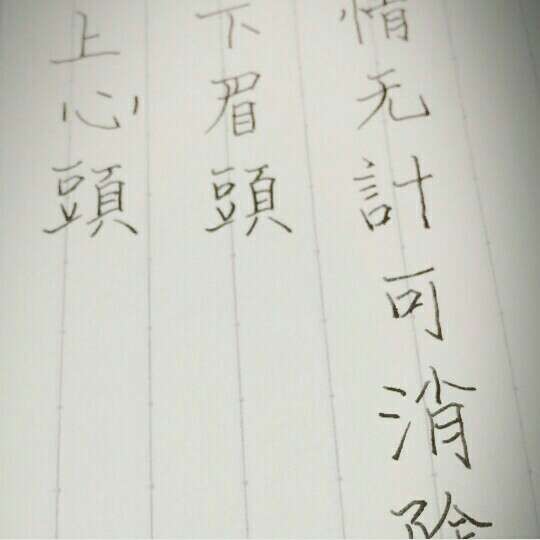 情无計可消除
下眉頭
上心頭